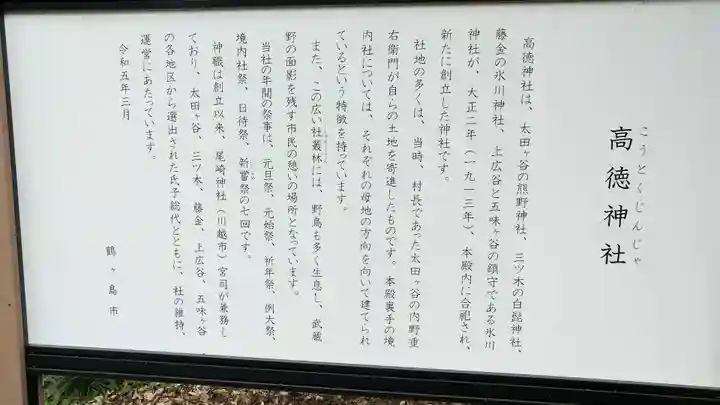 こうとくじんじゃ
高徳神社
高徳神社は、太田ヶ谷の熊野神社、三ツ木の白髭神社、
藤金の氷川神社、上広谷と五味ヶ谷の鎮守である氷川
神社が、大正二年（一九一三年）、本殿内に合祀され、
新たに創立した神社です。
社地の多くは、当時、村長であった太田ヶ谷の内野重
右衛門が自らの土地を寄進したものです。本殿裏手の境
内社については、それぞれの母地の方向を向いて建てられ
ているという特徴を持っています。
また、この広い社叢林には、野鳥も多く生息し、武蔵
野の面影を残す市民の憩いの場所となっています。
当社の年間の祭事は、元旦祭、元始祭、祈年祭、例大祭、
境内社祭、日待祭、新嘗祭の七回です。
神職は創立以来、尾崎神社（川越市）宮司が兼務し
ており、太田ヶ谷、三ツ木、藤金、上広谷、五味ヶ谷
の各地区から選出された氏子総代とともに、社の維持、
運営にあたっています。
令和五年三月
鶴ヶ島市